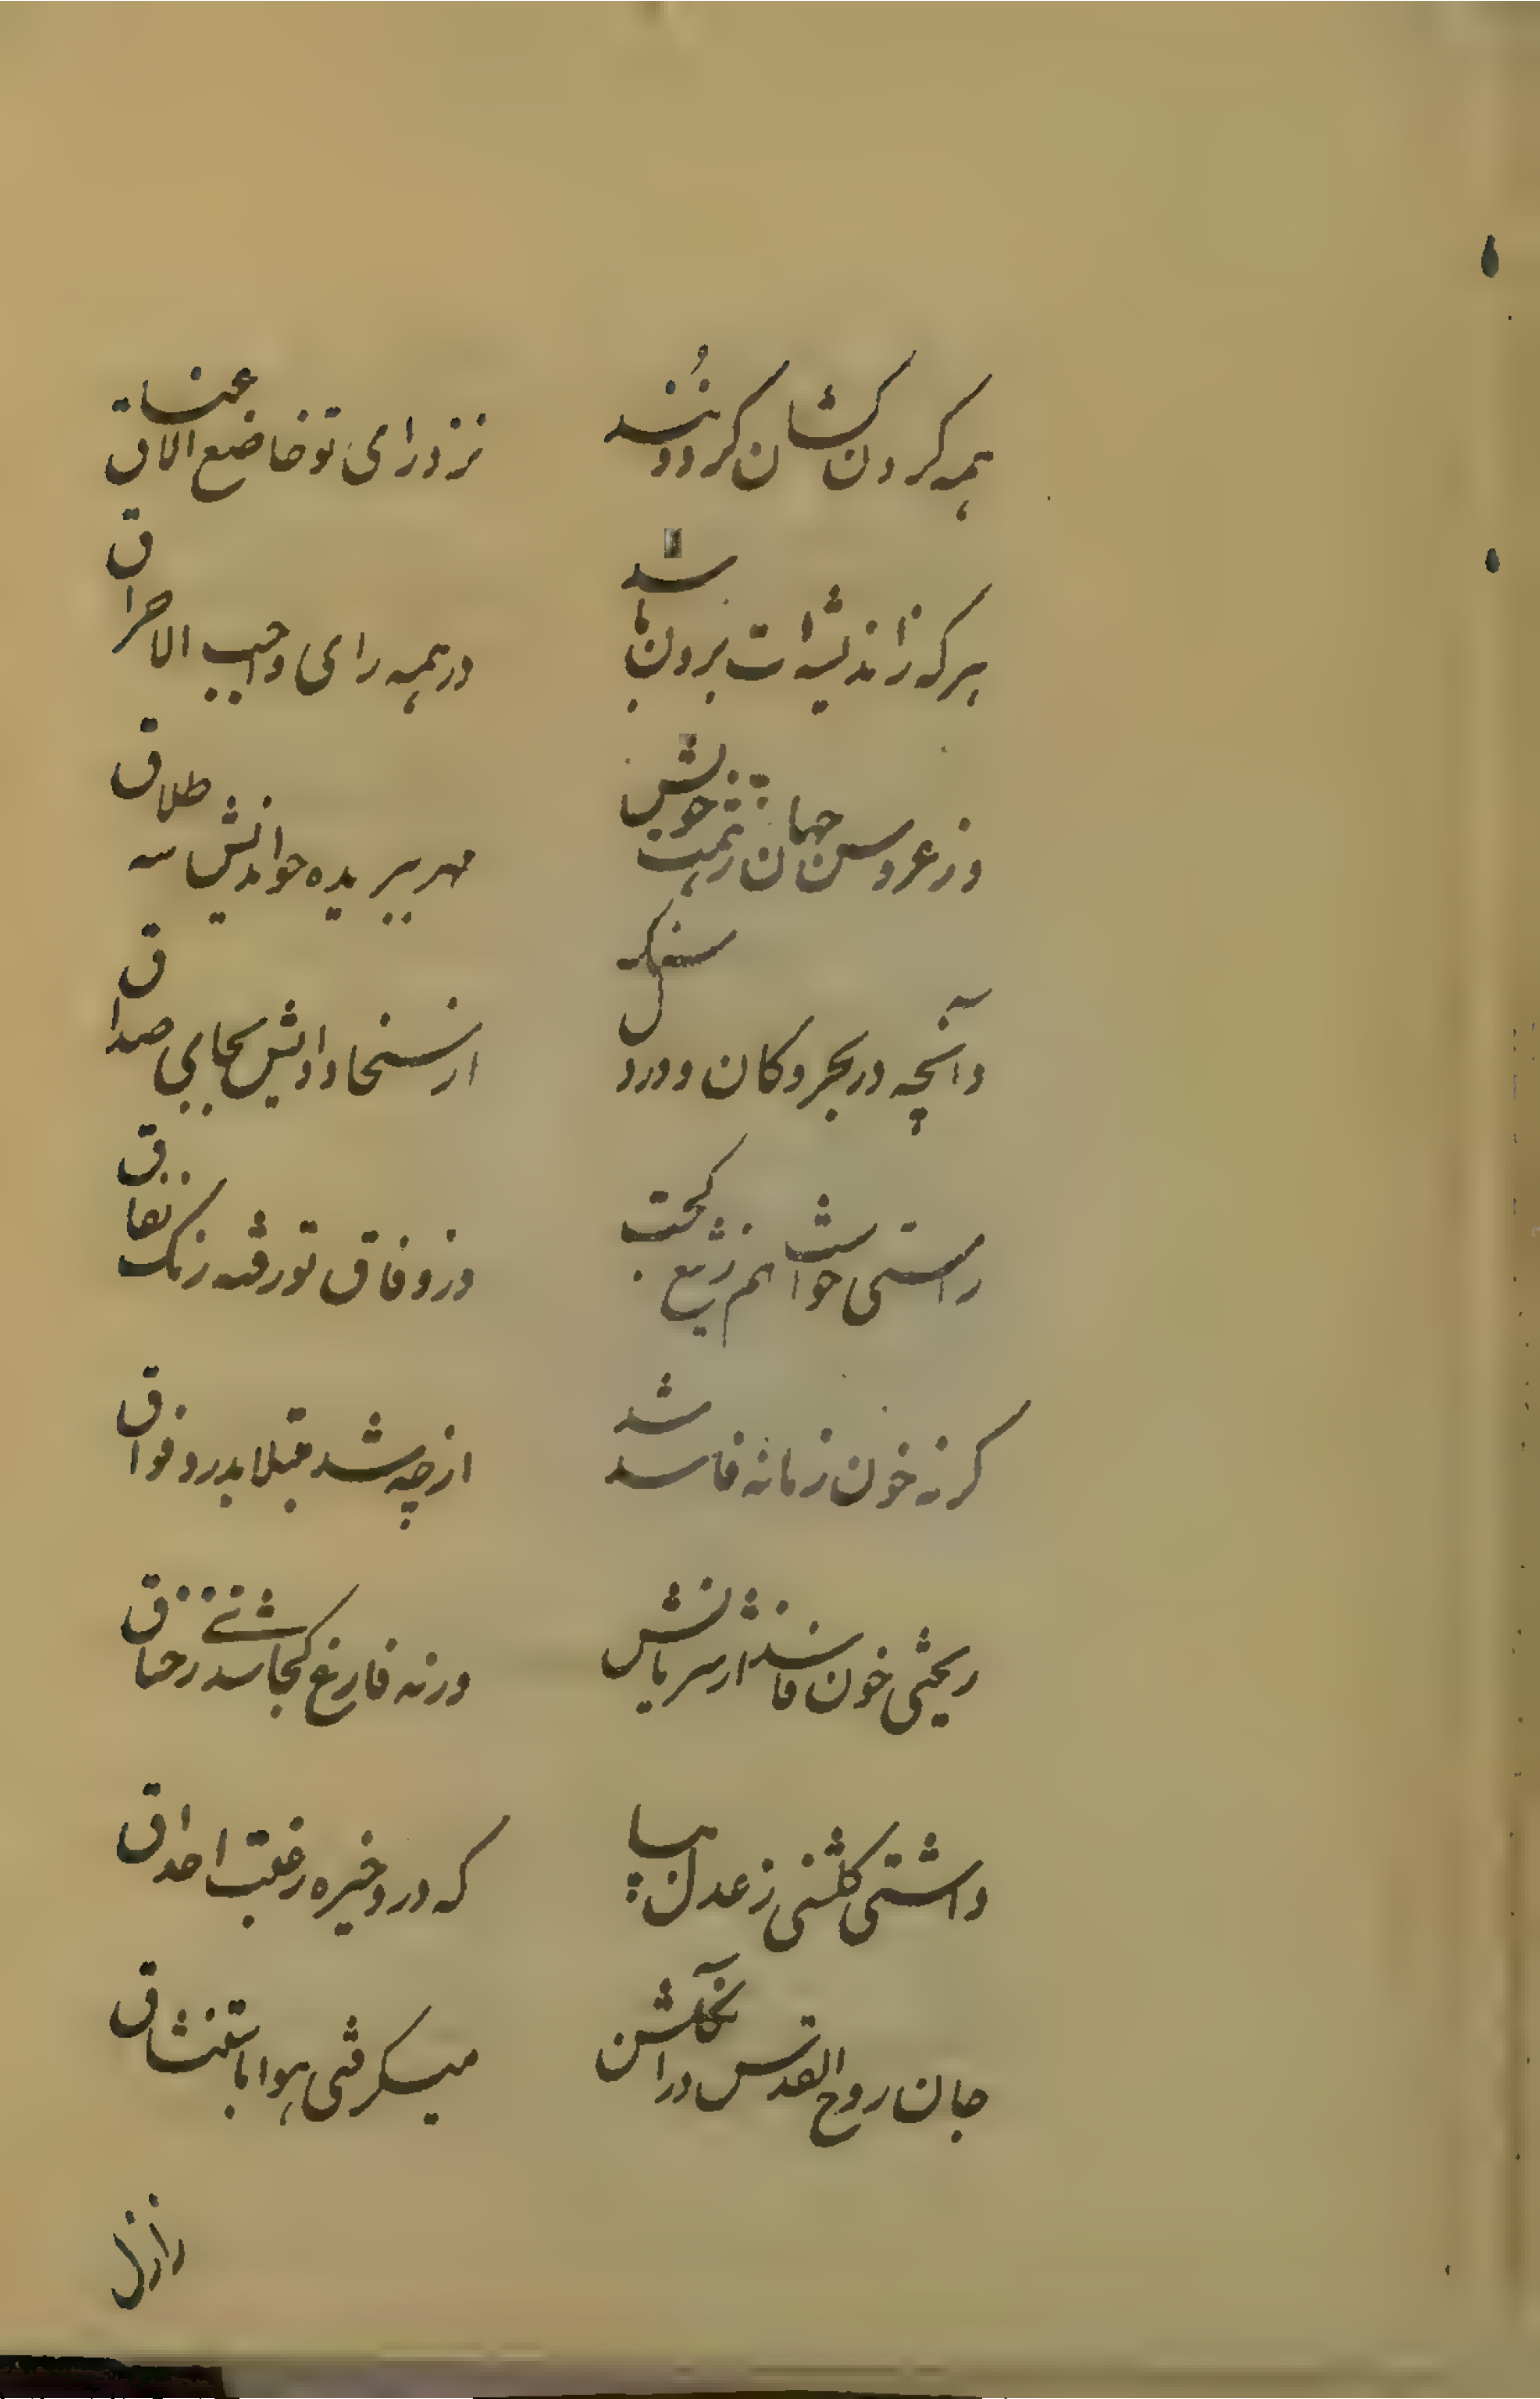 همه گردن کشان گردونند نزد رای تو خاضع الاعناق
هر که زاندیشه‌ات برون باشد در همه رای واجب الاحراق
وز عروس جهان ز همت خویش مهر ببریده خواندش سه طلاق
وآنچه در بحر و کان و در دل سنگ از سخا دادیش بجای صداق
راستی خواست هم ز تیغ کجت وز وفاق تو رفته رنگ نفاق
گر نه خون زمانه فاسد شد از چه شد مبتلا بدرد فواق
ریختی خون فاسد از شریانش ورنه فارغ کجا شدی ز خناق
داشتی گلشنی ز عدل بپا که در او خیره رفعت احداق
جان روح القدس در آن گلشن میگرفتی هوا باستنشاق
رازل